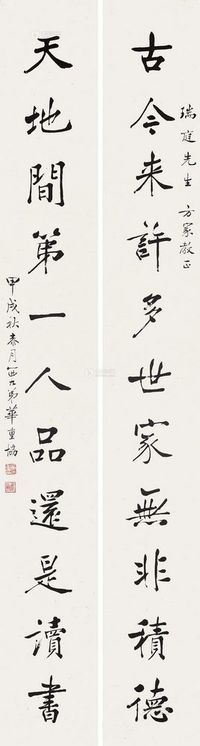 古今来許多世家無非積德
瑞庭先生 方家教正
天地間第一人品還是讀書
甲戌秋春月
弟華重協